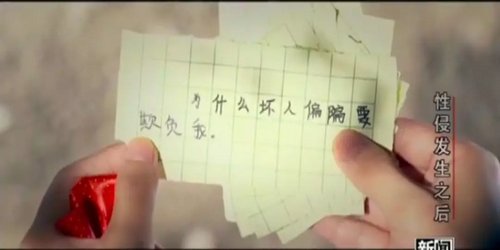 为什么坏人偏偏要
欺负我。
性侵发生之后
新闻